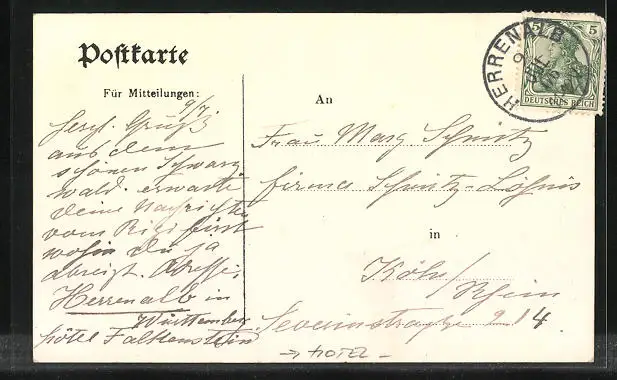 Postkarte
Für Mitteilungen:
9/7
Herzl. Gruß
aus dem
schönen Schwarz
wald. erwarte
deine Nachrichten
vom Rigi first
wohin du ja
abreist. Adresse:
Herrenalb in
Württemberg.
hôtel Falkenstein
An
Frau Marg Schmitz
firma Schmitz-
in
Köln/
Rhein
Severinstraße 214
→ HOTEL
HERRENALB
5 5
DEUTSCHES REICH